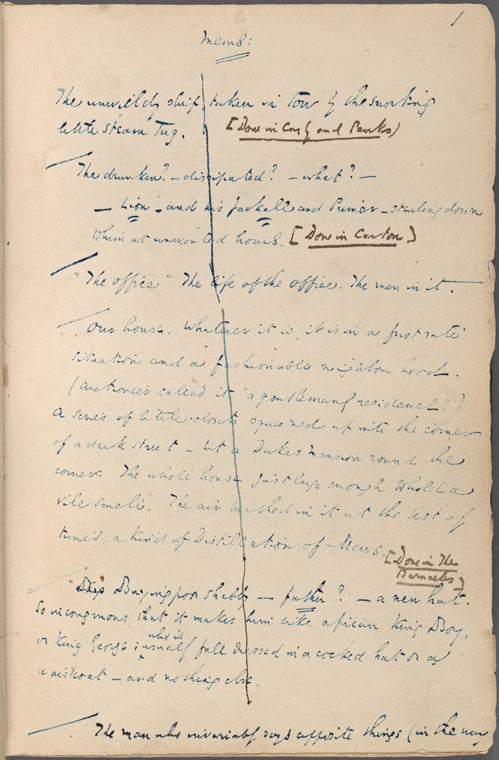 1
Mems:
The unwieldy ship, taken in tow by the snorting
little steam Tug.
[Done in Casby and Pancks]
The drunken? – dissipated? – what? –
– Lion – and his Jackall and Primer – stealing down
to him at unwonted hours. [Done in Carton]
"The office" The life of the office. The men in it.
Our house. Whatever it is, it is in a first rate
situation and a fashionable neighbourhood.
(auctioneer called it "a gentlemanly residence".)
A series of little closets squeezed up into the corner
of a dark street – but a Duke's mansion round the
corner. The whole house just large enough to hold a
vile smell. The air breathed in it at the best of
times, a kind of Distillation of Mews.
[Done in The
Barnacles]
buying poor shabby – father?: – a new hat.
So incongruous that it makes him like African King Boy,
or King George; who is usually full dressed in a cocked hat or a
waistcoat – and nothing else.
The man who invariably says apposite things (in the way